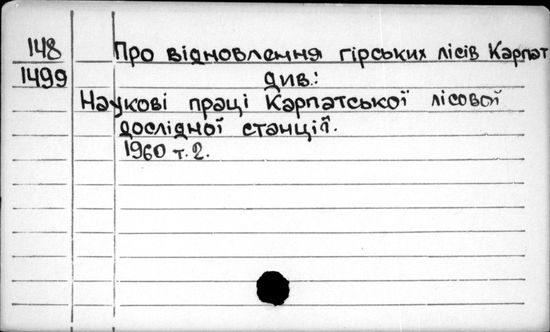 148
1499
Про відновлення гірських лісів Карпат
див.:
Наукові праці Карпатської лісової
дослідної станції.
1960 т. 2.